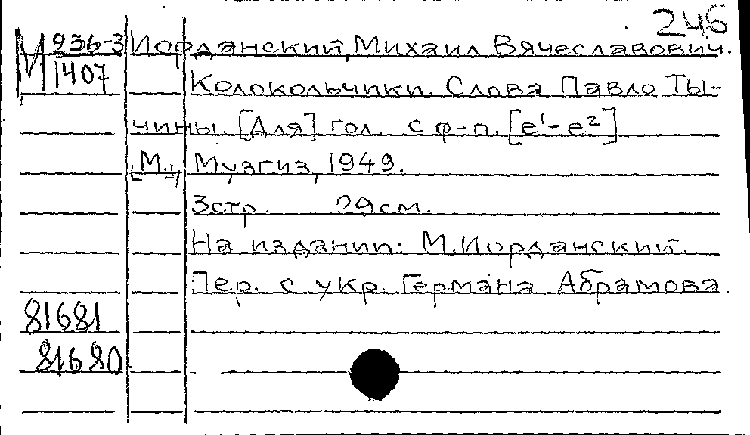 246
М 936-3 Иорданский, Михаил Вячеславович.
1407 Колокольчики. Слова Павло Ты-
чины. [Для] гол. с ф-п. [e¹-e²]
М., Музгиз, 1949.
3 стр. 29 см.
На издании: М. Иорданский.
Пер. с укр. Германа Абрамова.
81681
81680